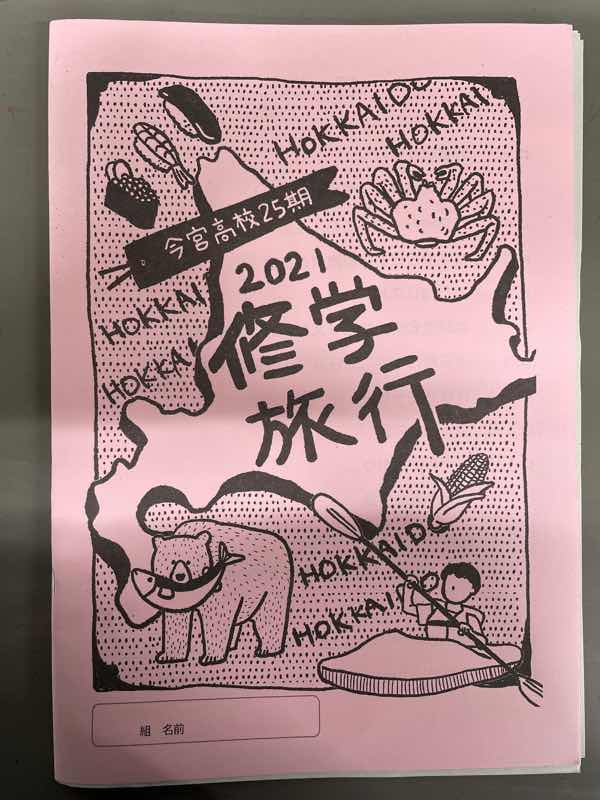 HOKKAIDO
HOKKAI
今宮高校25期
2021
修学
旅行
HOKKAI
HOKKAI
HOKKAIDO
HOKKAIDO
組 名前